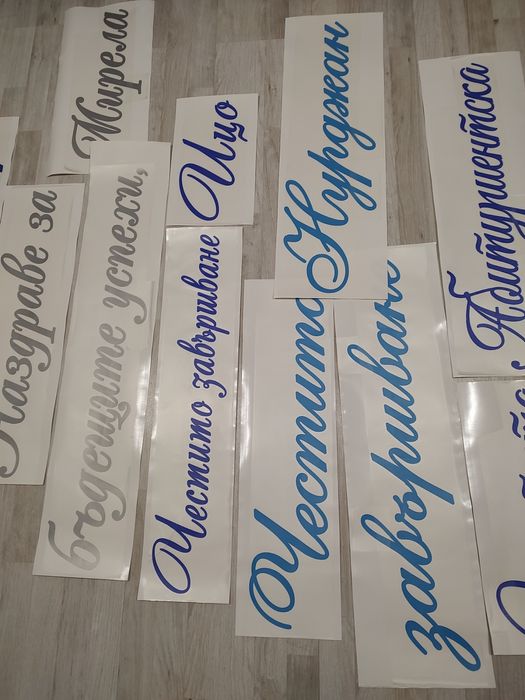 Мирела
Наздраве за
бъдещите успехи,
Ицо
Честито завършване
Нурджан
Честито
завършване
Абитуриентска